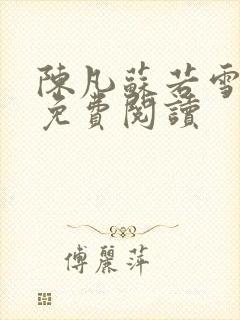 陳凡蘇若雪
免費閱讀
傅麗萍